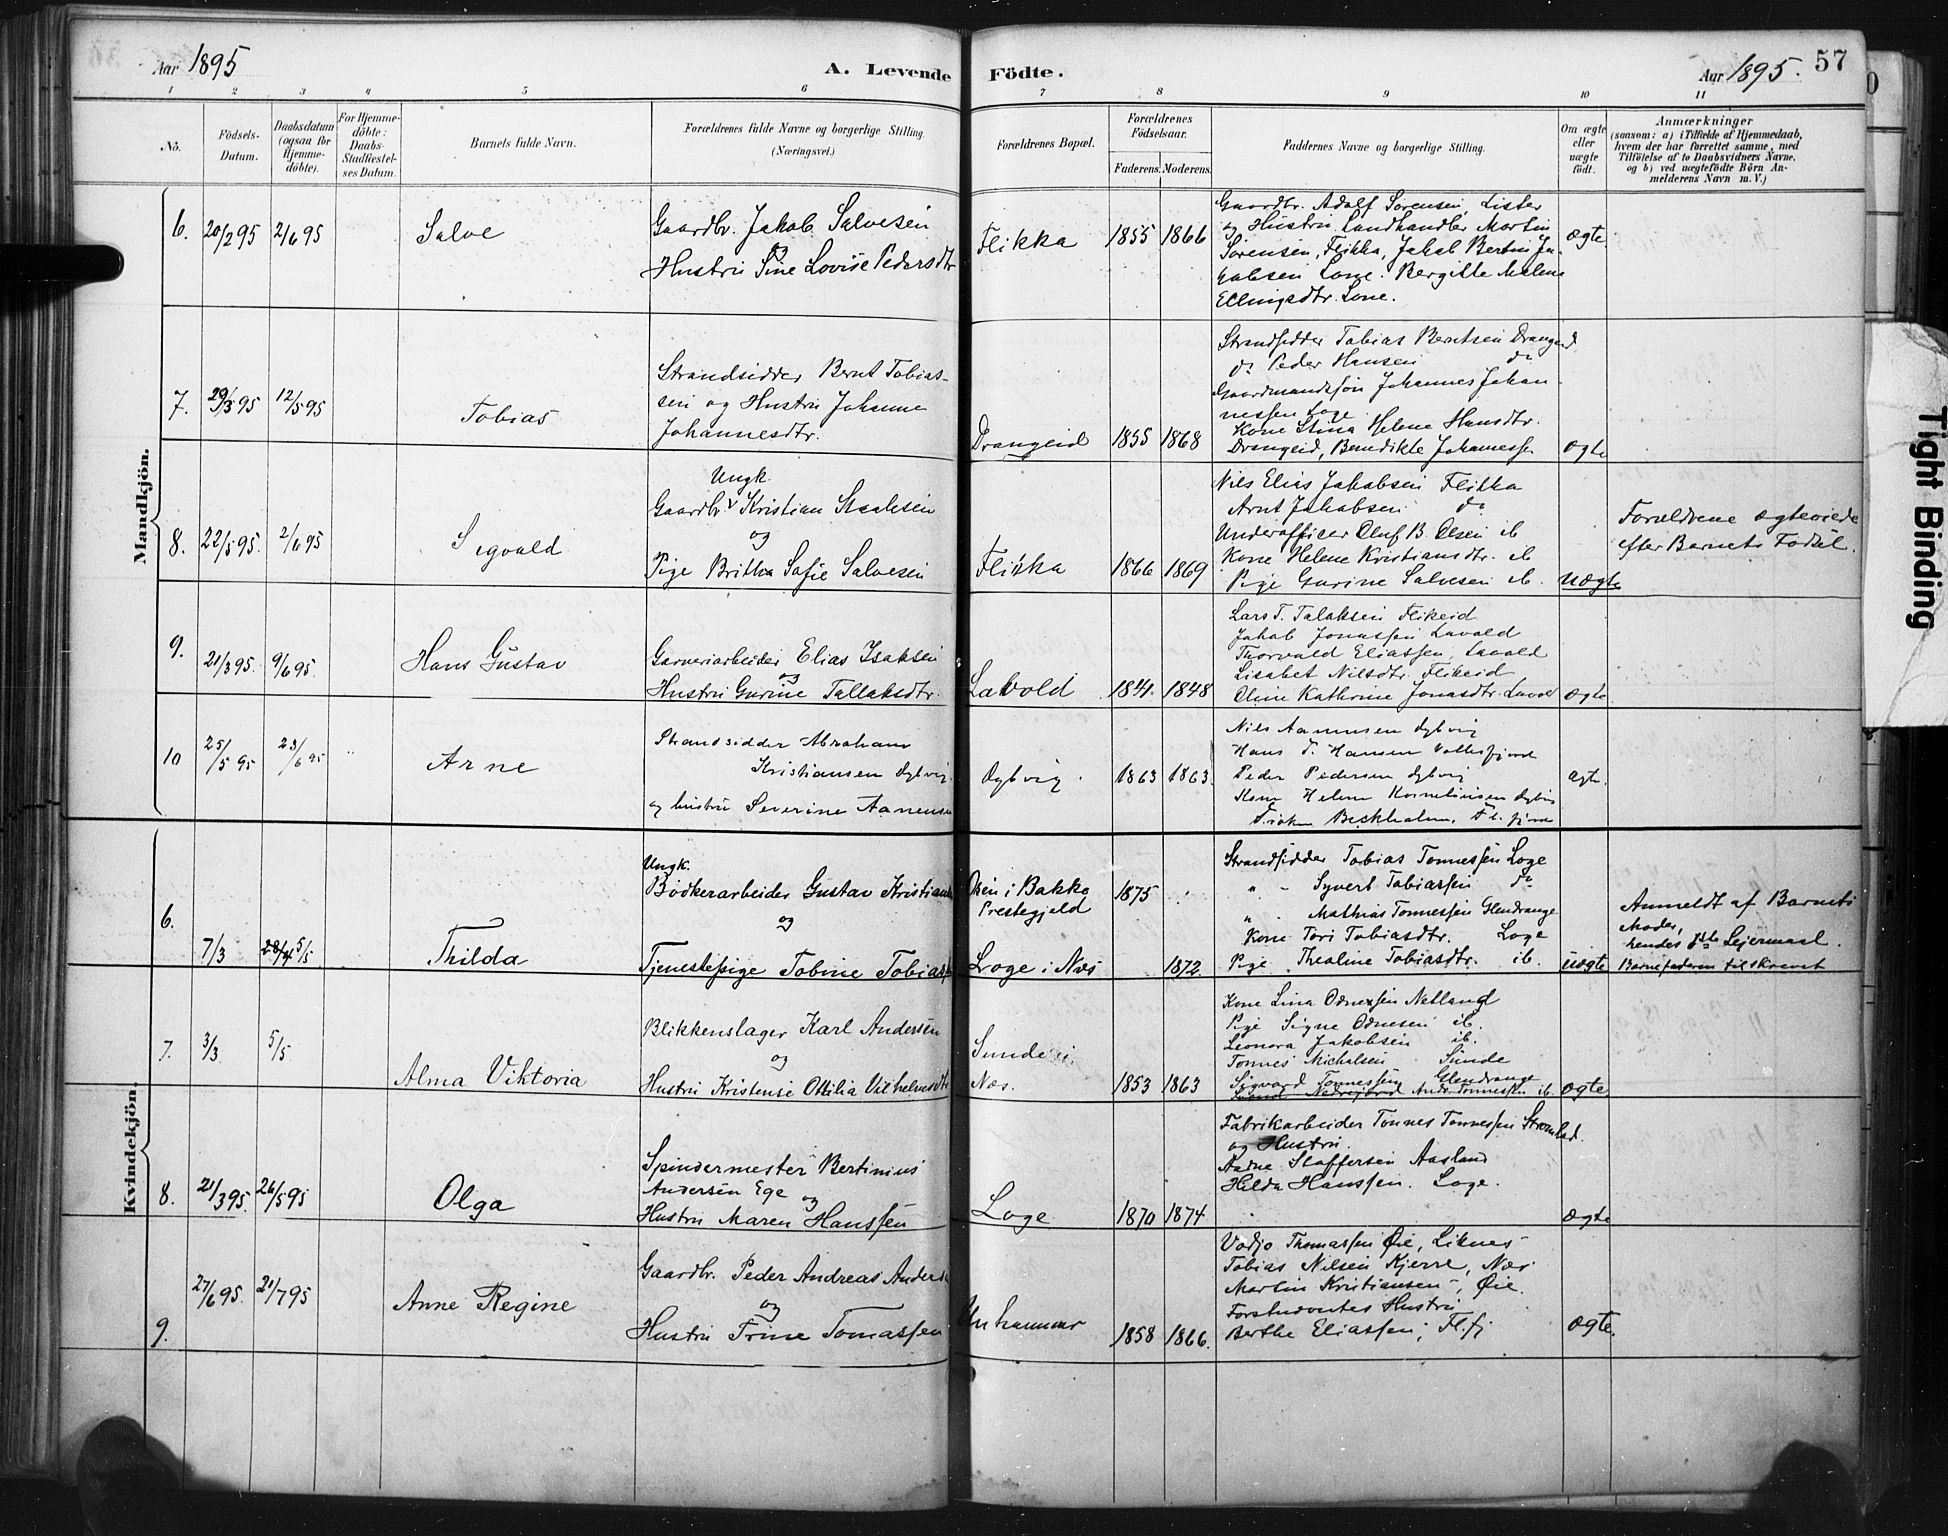 Aar 1895
A. Levende Födte.
Aar 1895. 57
1 2 3 4 5 6 7 8 9 10 11
No.
Födsels-
Datum.
Daabsdatum
(ogsaa for
Hjemme-
döbte).
For Hjemme-
döbte:
Daabs-
Stadfæstel-
ses Datum.
Barnets fulde Navn.
Forældrenes fulde Navne og borgerlige Stilling.
(Næringsvei.)
Forældrenes Bopæl.
Forældrenes
Födselsaar.
Faderens. Moderens.
Faddernes Navne og borgerlige Stilling.
Om ægte
eller
uægte
født.
Anmærkninger
(saasom: a) i Tilfælde af Hjemmedaab,
hvem der har forrettet samme, med
Tilföielse af to Daabsvidners Navne,
og b) ved uægtefödte Börn An-
melderens Navn m. V.)
Mandkjön.
6. 20/2 95 2/6 95
Salve
Gaardbr. Jakob Salvesen
og
Hustru Sine Lovise Pedersdtr
Flikka 1855 1866
Gaardbr. Adolf Sörensen, Lister
og Hustru, Landhandler Martin
Sörensen, Flikka, Jakob Bertin Ja-
kobsen Lone. Bergitte Malene
Ellingsdtr. Lone.
ægte
7. 29/3 95 12/5 95
Tobias
Strandsidder Bernt Tobias-
sen og Hustru Johanne
Johannesdtr.
Drangeid 1855 1868
Strandsidder Tobias Berntsen Drangeid
do Peder Hansen do
Gaardmandssön Johannes Johan-
nessen Loge
Kone Stina Helene Hansdtr.
Drangeid, Bendikte Johannessen
ægte
8. 22/5 95. 2/6 95
Sigvald
Ungk.
Gaardbr. Kristian Isaksen
og
Pige Britha Sofie Salvesen
Flikka 1866 1869
Nils Elias Jakobsen Flikka
Arnt Jakobsen do
Underofficer Oluf B. Olsen ib
Kone Helene Kristiansdtr. ib
Pige Gurine Salvesen ib.
uægte
Forældrene ægteviede
efter Barnets Födsel.
9. 21/3 95. 9/6 95.
Hans Gustav
Garveriarbeider Elias Isaksen
og
Hustru Gurine Tallaksdtr.
Lavold 1841. 1848
Lars T. Talaksen Flikeid
Jakob Jonassen Lavold
Thorvald Eliassen, Lavold
Lisabet Nilsdtr. Flikeid
Oline Kathrine Jonasdtr. Lavold
ægte
10 25/5 95 23/6 95
Arne
Strandsidder Abraham
Kristiansen Dybvig
og hustru Severine Aanensen
Dybvig. 1863 1863.
Nils Aanensen Dybvig
Hans T. Hansen
Peder Pedersen Dybvig
Kone Helene Korneliusen Dybvig
Fröken Beckholm, Fl. fjord
ægte.
Kvindekjön.
6. 7/3 28/4 5/5
Thilda
Ungk.
Bödkerarbeider Gustav Kristiansen
og
Tjenestepige Tobine Tobiassen
Osen i Bakke
Prestegjeld
Loge i Næs
1875
1872
Strandsidder Tobias Tonnessen Loge
" - Syvert Tobiassen do
" - Mathias Tonnessen Glendrange
Kone Tori Tobiasdtr. Loge
Pige Thealine Tobiasdtr. ib.
uægte
Anmeldt af Barnets
Moder,
hendes 1ste Leiermaal.
Barnefaderen tilskrevet
7. 3/3 5/5
Alma Viktoria
Blikkenslager Karl Andersen
og
Hustru Kristense Ottilia Vilhelmsdtr
Sunde i
Næs. 1853 1863
Kone Lina Odnessen Netland
Pige Signe Odnesen ib.
Leonora Jakobsen ib.
Tonnes Michalsen Sunde
Sigvard Tonnessen Glendrange
Andr. Tonnessen ib.
ægte
8. 21/3 95. 26/5 95
Olga
Spindermester Bertinius
Andersen Ege og
Hustru Maren Hanssen
Loge 1870 1874
Fabrikarbeider Tonnes Tonnessen Stromlad.
og Hustru.
Aadne Stoffersen Aasland
Hilda Hanssen. Loge.
ægte
9. 27/6 95. 21/7 95
Anne Regine
Gaardbr. Peder Andreas Andersen
og
Hustru Trine Tomassen
Unhammer 1858 1866.
Vadjo Thomassen Øie, Liknes
Tobias Nilsen Kjerre, Næs
Martin Kristiansen, Øie.
Forstudentes Hustru
Berthe Eliassen, Fl. fj
ægte.
Tight Binding